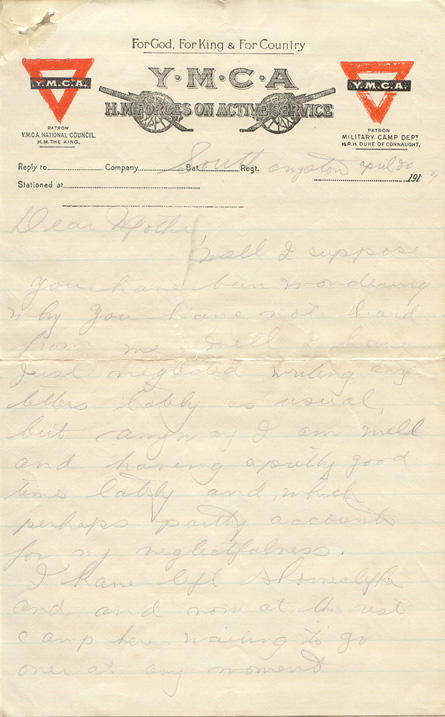 For God, For King & For Country
Y.M.C.A
H.M. FORCES ON ACTIVE SERVICE
Y.M.C.A.
PATRON
Y.M.C.A. NATIONAL COUNCIL.
H.M. THE KING.
Y.M.C.A.
PATRON
MILITARY CAMP DEPT
H.R.H. DUKE OF CONNAUGHT.
Reply to Company Bat. Regt. April 20
Stationed at 191
Dear Mother
Well I suppose
you have been wondering
why you have not heard
from me. Well I have
just neglected writing any
letters lately as usual,
but anyway I am well
and having a pretty good
time lately and, which
perhaps partly accounts
for my neglectfulness.
I have left Shorncliffe
and and now at the rest
camp here waiting to go
over at any moment